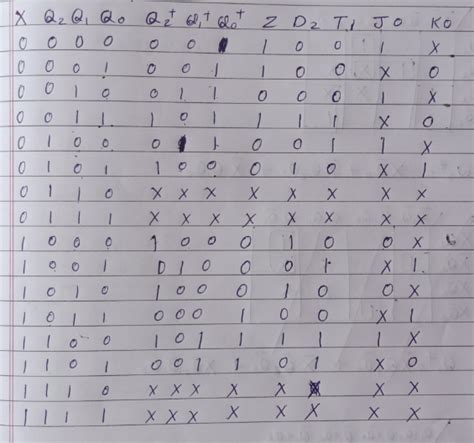 X Q₂ Q₁ Q₀ Q₂⁺ Q₁⁺ Q₀⁺ Z D₂ T₁ J0 K0
0 0 0 0 0 0 1 1 0 0 1 X
0 0 0 1 0 0 1 1 0 0 X 0
0 0 1 0 0 1 1 0 0 0 1 X
0 0 1 1 1 0 1 1 1 1 X 0
0 1 0 0 0 1 1 0 0 1 1 X
0 1 0 1 1 0 0 0 1 0 X 1
0 1 1 0 X X X X X X X X
0 1 1 1 X X X X X X X X
1 0 0 0 1 0 0 0 1 0 0 X
1 0 0 1 0 1 0 0 0 1 X 1
1 0 1 0 1 0 0 0 1 0 0 X
1 0 1 1 0 0 0 1 0 0 X 1
1 1 0 0 1 0 1 1 1 1 1 X
1 1 0 1 0 0 1 1 0 1 X 0
1 1 1 0 X X X X X X X X
1 1 1 1 X X X X X X X X